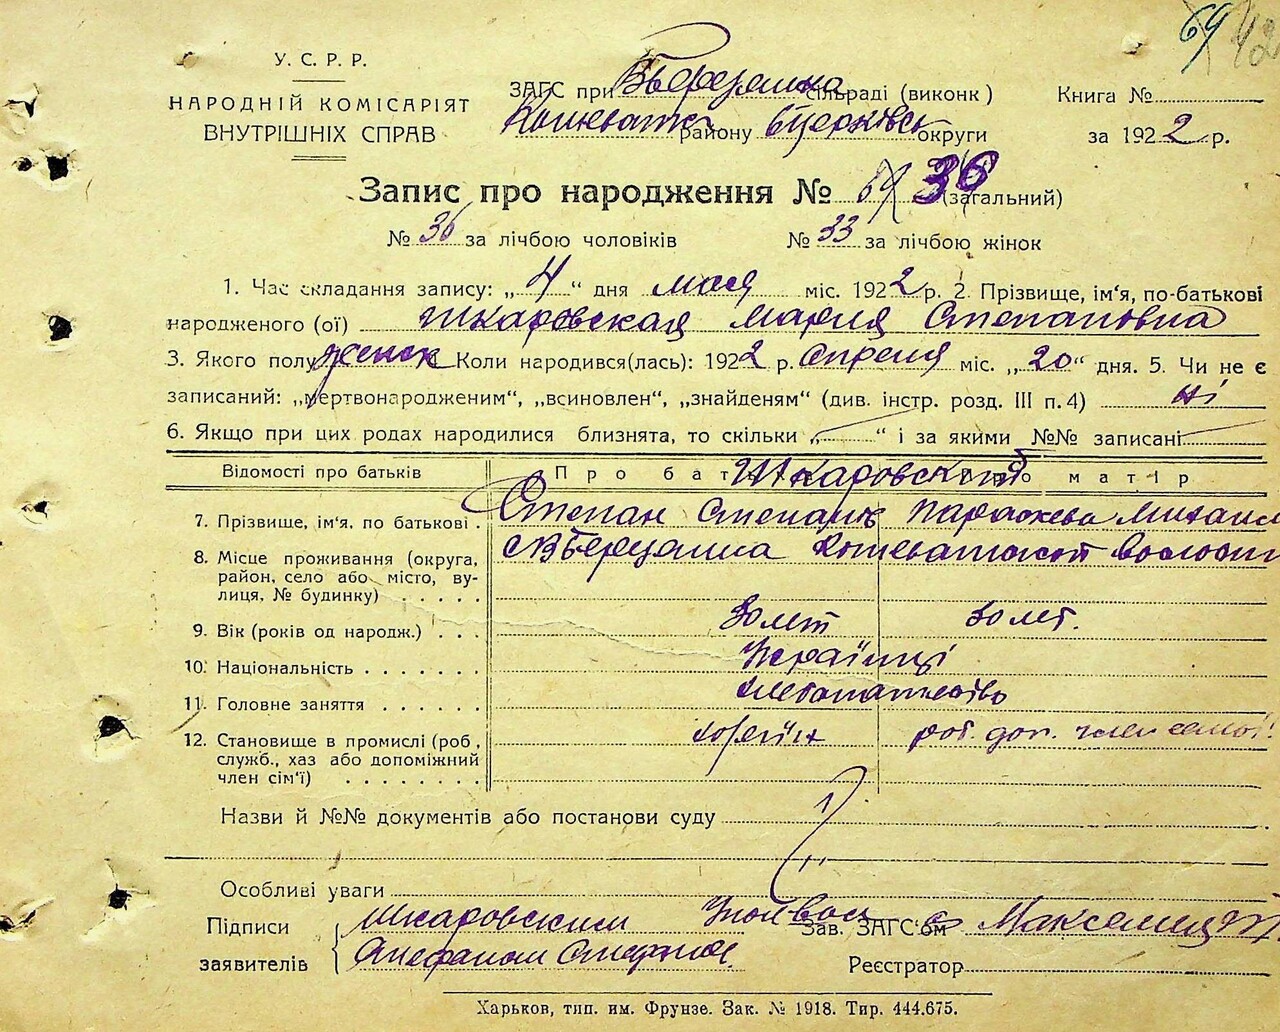 64 42
У. С. Р. Р.
НАРОДНІЙ КОМІСАРІЯТ
ВНУТРІШНІХ СПРАВ
ЗАГС при В Березянка сільраді (виконк)
району Бцерківськ округи
Книга №
за 1922 р.
Запис про народження № 64 36 (загальний)
№ 36 за лічбою чоловіків № 33 за лічбою жінок
1. Час складання запису: „ 4 “ дня мая міс. 1922 р. 2. Прізвище, ім'я, по-батькові
народженого (ої) Шкаровская Мария Степановна
3. Якого полу женск Коли народився(лась): 1922 р. Апреля міс. „20“ дня. 5. Чи не є
записаний: „мертвонародженим“, „всиновлен“, „знайденям“ (див. інстр. розд. III п. 4) ні
6. Якщо при цих родах народилися близнята, то скільки „ “ і за якими №№ записані
Відомості про батьків
Про бать Шкаровский матір
7. Прізвище, ім'я, по батькові. Степан Степан Параскева Михайл
8. Місце проживання (округа, район, село або місто, вулиця, № будинку) с В Березянка
9. Вік (років од народж.) 30 лет 30 лет.
10. Національність Українці
11. Головне заняття хлебопашество
12. Становище в промислі (роб., служб., хаз або допоміжний член сім'ї) хозяїн роб. доп. член семьї
Назви й №№ документів або постанови суду
Особливі уваги
Підписи заявителів Шкаровским
Зав. ЗАГС'ом
Реєстратор
Харьков, тип. им. Фрунзе. Зак. № 1918. Тир. 444.675.